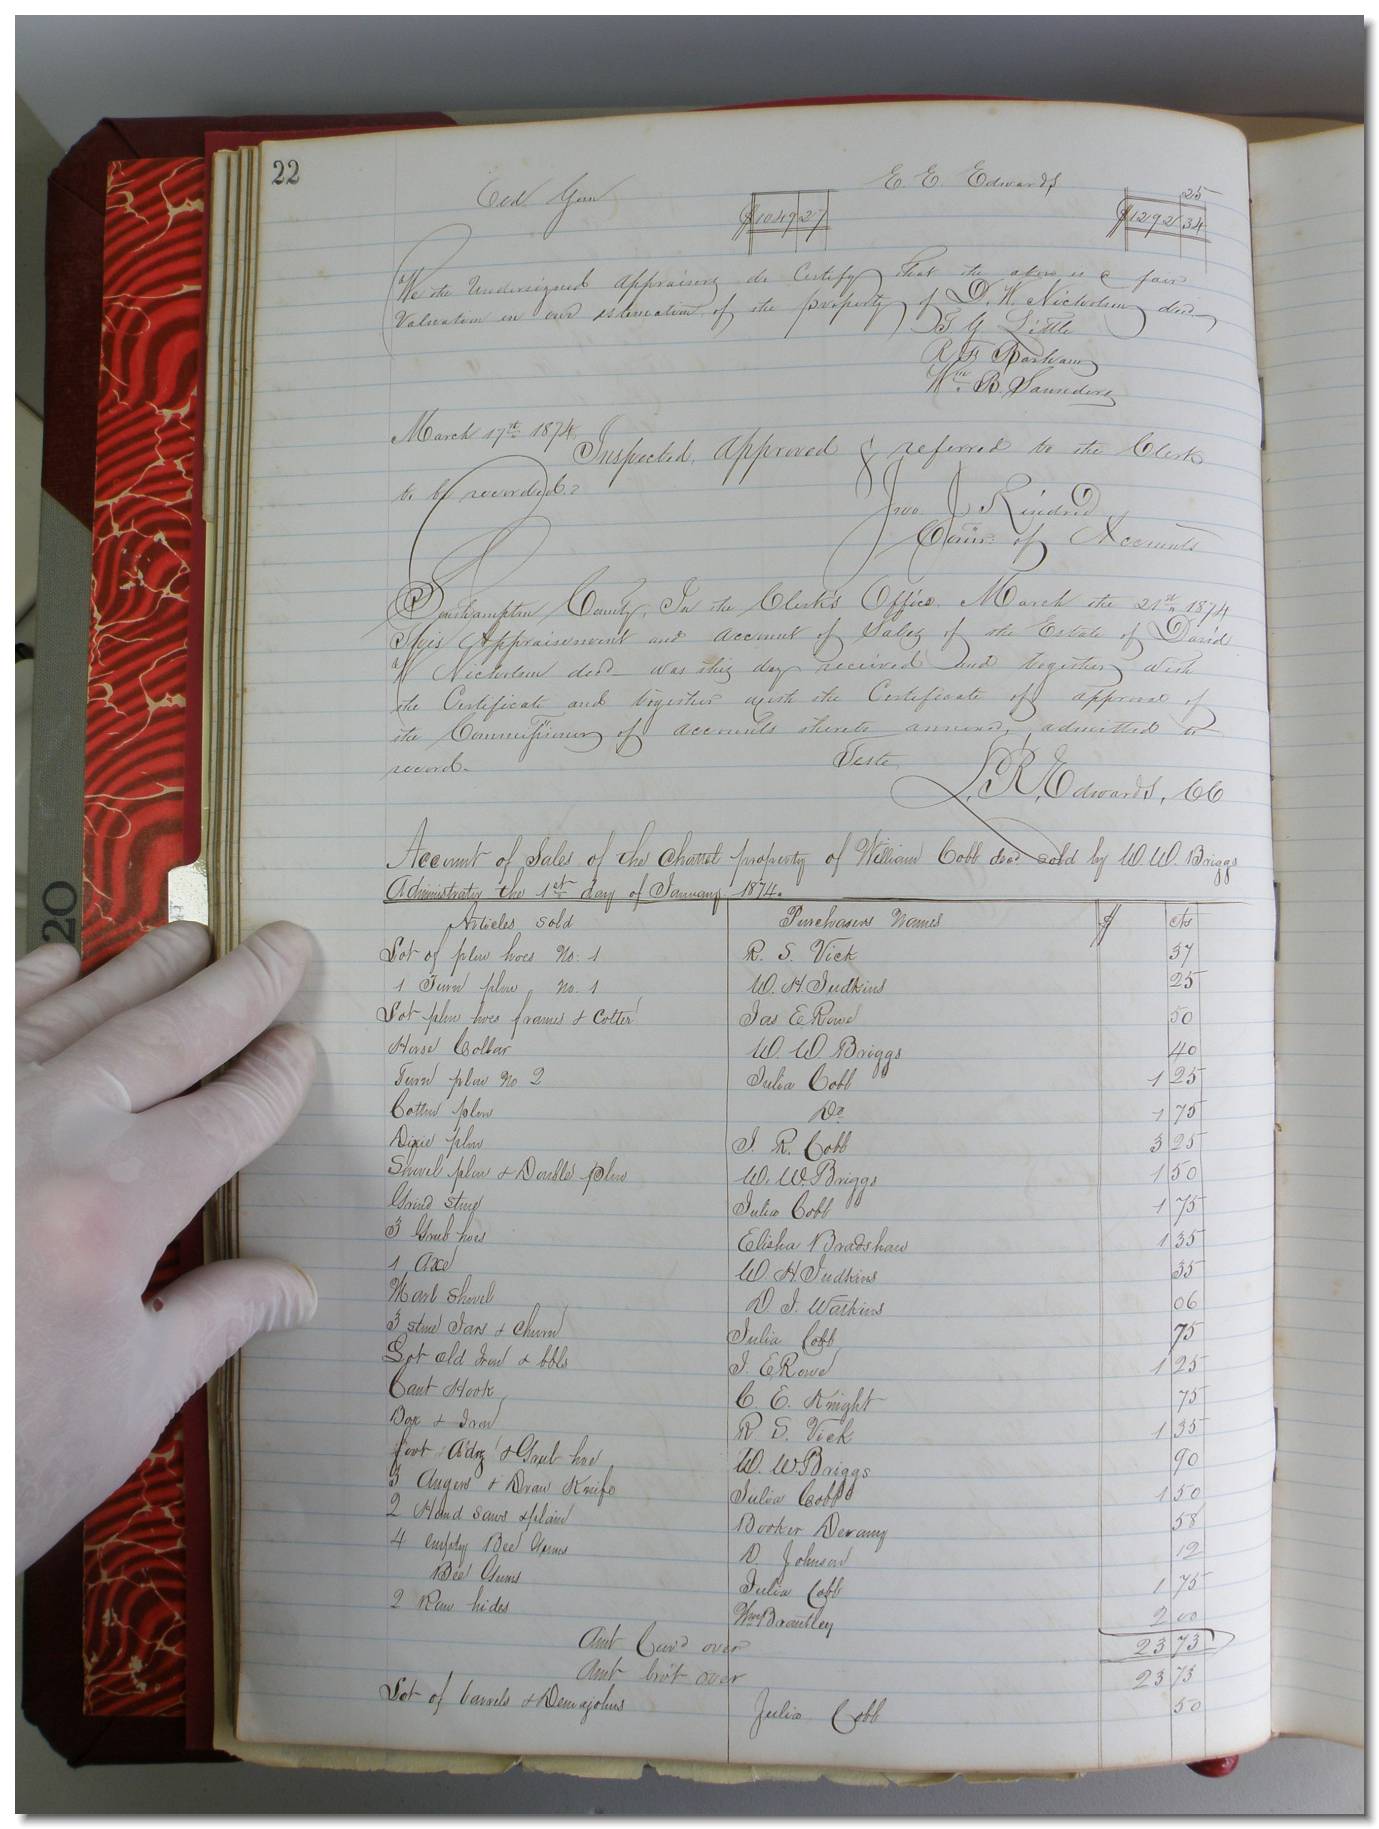 22
Old Gun E. E. Edwards 25
$1049 27 $1292 34
We the undersigned Appraisers do Certify that the above is a fair
Valuation in our estimation of the property of D. W. Nicholson decd
T. Y. Little
R. F. Barham
Wm. B. Saunders
March 17th 1874
Inspected, Approved & referred to the Clerk
to be recorded.
Jno. J. Kindred
Comr. of Accounts
Southampton County, In the Clerk's Office, March the 21st 1874
This Appraisement and account of Sales of the Estate of David
W Nicholson decd was this day received and together with
the Certificate and together with the Certificate of approval of
the Commissioner of accounts thereto annexed, admitted to
record.
Teste
L. R. Edwards, CC
Account of Sales of the Chattel property of William Cobb decd sold by W. W. Briggs
Administrator the 1st day of January 1874.
Articles Sold Purchasers Names $ cts
Lot of plow hoes No. 1 R. S. Vick 37
1 Turn plow No. 1 W. H. Judkins 25
Lot plow hoes frames & Cotter Jas E Rowe 50
Horse Collar W. W. Briggs 40
Turn plow No 2 Julia Cobb 1 25
Cotton plow Do 1 75
Dixie plow J. R. Cobb 3 25
Shovel plow & Double plow W. W. Briggs 1 50
Grind stone Julia Cobb 1 75
3 Grub hoes Elisha Bradshaw 1 35
1 Axe W. H. Judkins 35
Marl Shovel D. J. Watkins 06
3 stone Jars & Churn Julia Cobb 75
Lot old Iron & bbls J. E Rowe 1 25
Cant Hook C. E. Knight 75
Box & Iron R. S. Vick 1 35
foot Adz & Grub hoe W. W. Briggs 90
3 Augers & Draw Knife Julia Cobb 1 50
2 Hand Saws & plain Booker Derany 58
4 empty Bee Gums D. Johnson 12
Bee Gums Julia Cobb 1 75
2 Raw hides Wm Brantley 2 00
Amt Card over 23 73
Amt brot over 23 73
Lot of barrels & Demajohns Julia Cobb 50
20